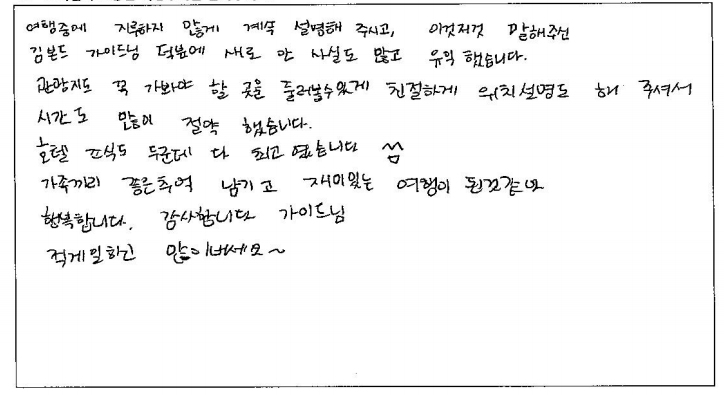 여행중에 지루하지 않게 계속 설명해 주시고, 이것저것 말해주신
김본드 가이드님 덕분에 새로 안 사실도 많고 유익 했습니다.
관광지도 꼭 가봐야 할 곳을 둘러볼수있게 친절하게 위치설명도 해 주셔서
시간도 많이 절약 했습니다.
호텔 조식도 두군데 다 최고 였습니다 ^^
가족끼리 좋은추억 남기고 재미있는 여행이 된것같아
행복합니다. 감사합니다 가이드님
적게일하고 많이버세요~